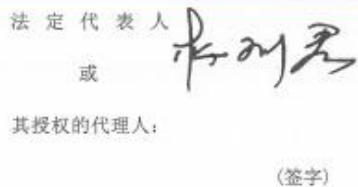 法定代表人
或
其授权的代理人：
(签字)